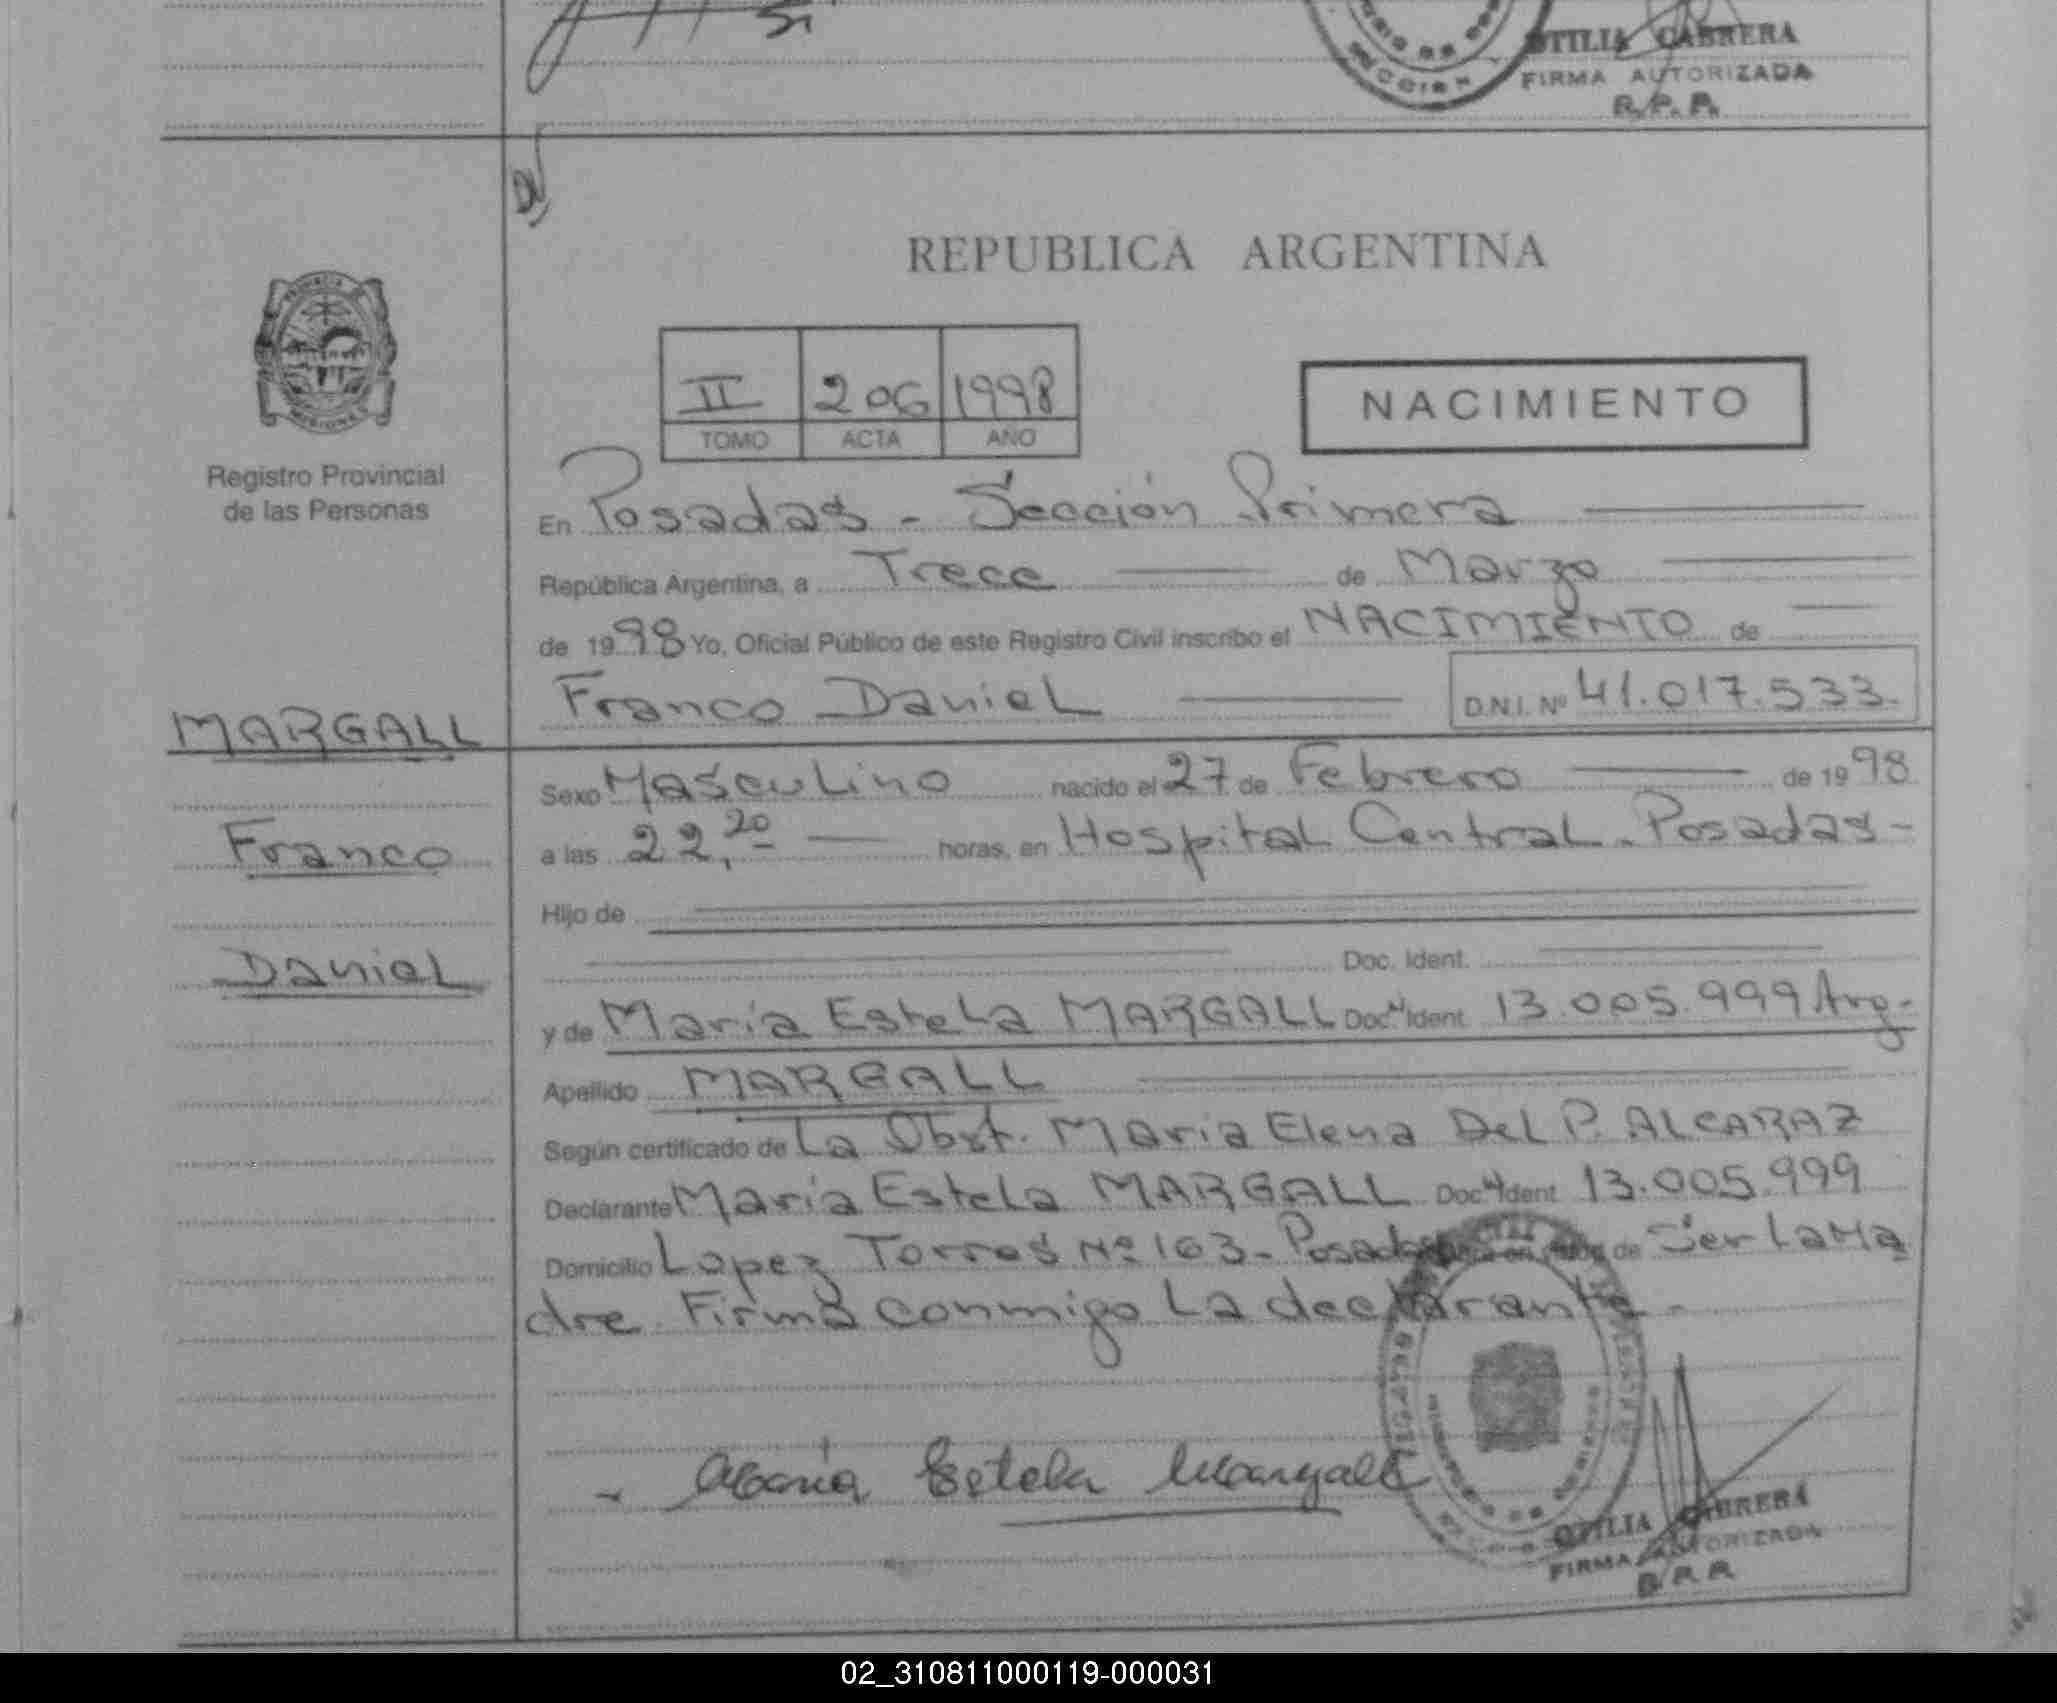 OTILIA CABRERA
FIRMA AUTORIZADA
R.P.P.
REPUBLICA ARGENTINA
II 206 1998
TOMO ACTA AÑO
NACIMIENTO
Registro Provincial
de las Personas
En Posadas - Sección Primera
República Argentina, a Trece de Marzo
de 1998 Yo, Oficial Público de este Registro Civil inscribo el NACIMIENTO de
Franco Daniel D.N.I. Nº 41.017.533.
MARGALL
Franco
Daniel
Sexo Masculino nacido el 27 de Febrero de 1998
a las 22,20 horas, en Hospital Central - Posadas -
Hijo de
Doc. Ident.
y de María Estela MARGALL Doc. Ident. 13.005.999 Arg.
Apellido MARGALL
Según certificado de La Obst. Maria Elena Del P. ALCARAZ
Declarante María Estela MARGALL Doc. Ident. 13.005.999
Domicilio Lopez Torres Nº 163 - Posadas de Ser La Ma
dre. Firma conmigo La declarante -
María Estela Margall
OTILIA CABRERA
FIRMA AUTORIZADA
R.P.P.
02_310811000119-000031